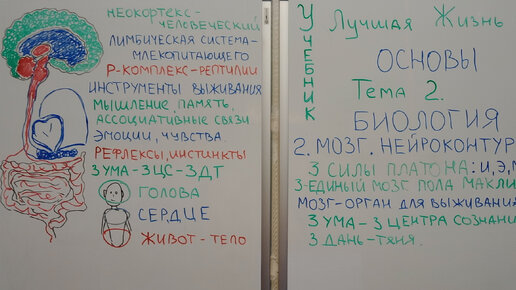 НЕОКОРТЕКС-
ЧЕЛОВЕЧЕСКИЙ
ЛИМБИЧЕСКАЯ СИСТЕМА-
МЛЕКОПИТАЮЩЕГО
Р-КОМПЛЕКС-РЕПТИЛИИ
ИНСТРУМЕНТЫ ВЫЖИВАНИЯ
МЫШЛЕНИЕ, ПАМЯТЬ,
АССОЦИАТИВНЫЕ СВЯЗИ
ЭМОЦИИ, ЧУВСТВА.
РЕФЛЕКСЫ, ИНСТИНКТЫ
3 УМА-3ЦС-3ДТ
ГОЛОВА
СЕРДЦЕ
ЖИВОТ-ТЕЛО
УЧЕБНИК
Лучшая Жизнь
ОСНОВЫ
Тема 2.
БИОЛОГИЯ
2. МОЗГ. НЕЙРОКОНТУР
3 СИЛЫ ПЛАТОНА: И, Э, М
3-ЕДИНЫЙ МОЗГ ПОЛА МАКЛИ
МОЗГ-ОРГАН ДЛЯ ВЫЖИВАНИ
3 УМА-3 ЦЕНТРА СОЗНАНИ
3 ДАНЬ-ТЯНЯ.